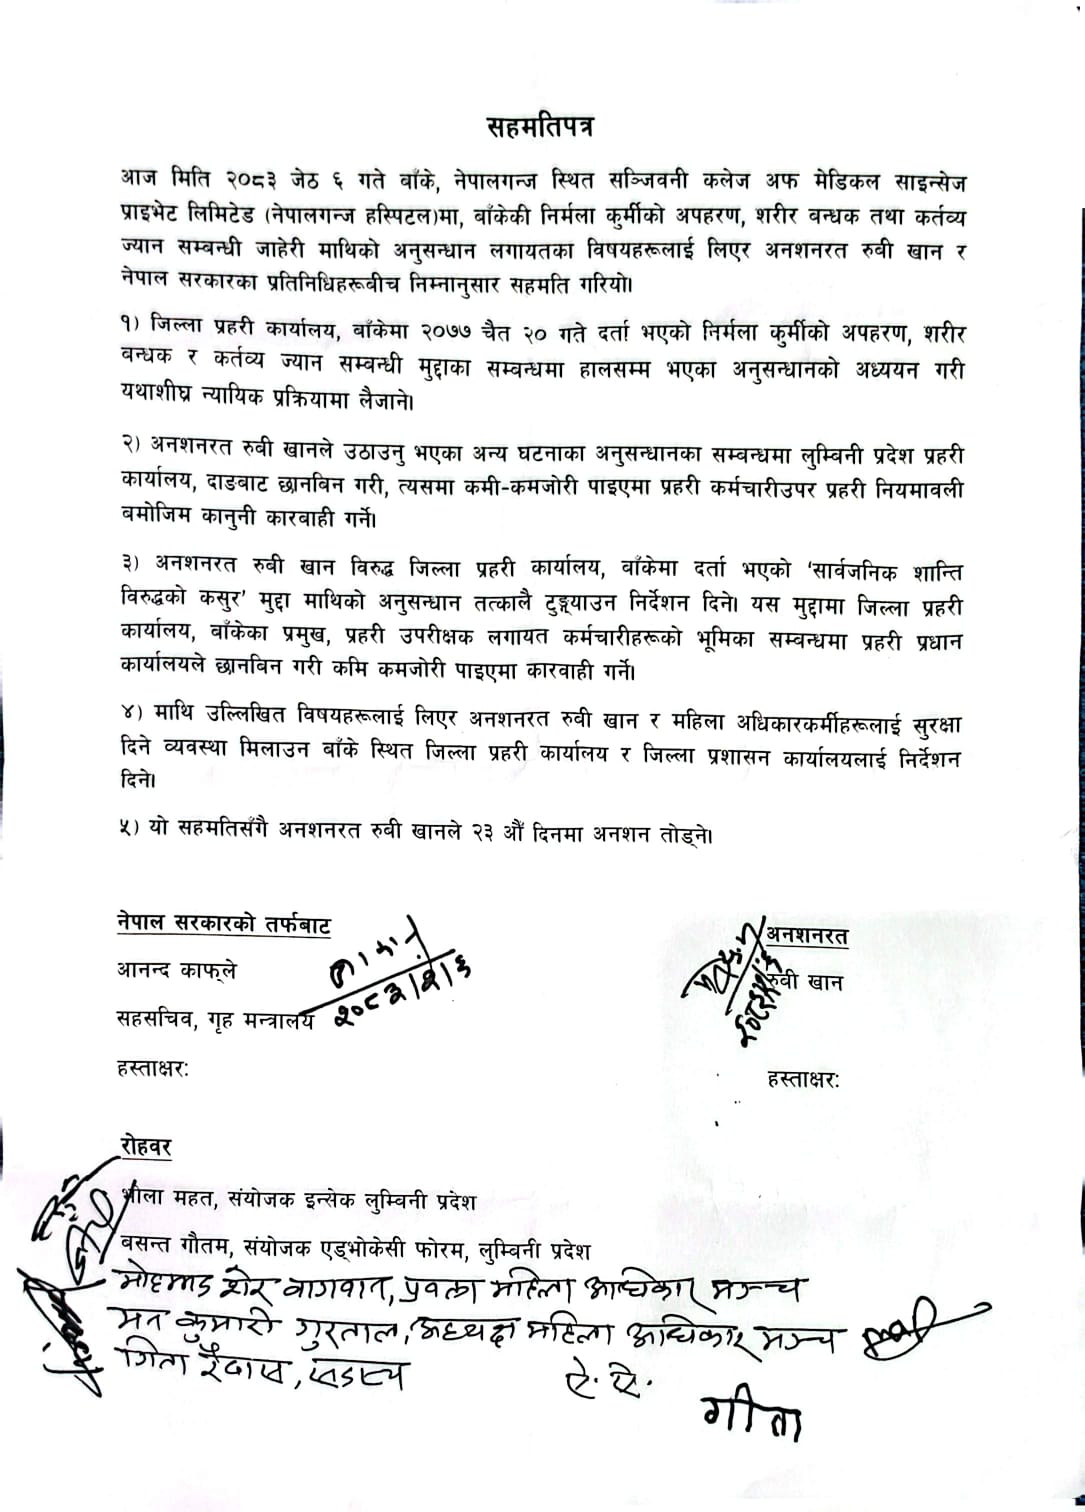 सहमतिपत्र
आज मिति २०८३ जेठ ६ गते बाँके, नेपालगन्ज स्थित सञ्जिवनी कलेज अफ मेडिकल साइन्सेज
प्राइभेट लिमिटेड (नेपालगन्ज हस्पिटल)मा, बाँकेकी निर्मला कुर्मीको अपहरण, शरीर बन्धक तथा कर्तव्य
ज्यान सम्बन्धी जाहेरी माथिको अनुसन्धान लगायतका विषयहरूलाई लिएर अनशनरत रुबी खान र
नेपाल सरकारका प्रतिनिधिहरूबीच निम्नानुसार सहमति गरियो।
१) जिल्ला प्रहरी कार्यालय, बाँकेमा २०७७ चैत २० गते दर्ता भएको निर्मला कुर्मीको अपहरण, शरीर
बन्धक र कर्तव्य ज्यान सम्बन्धी मुद्दाका सम्बन्धमा हालसम्म भएका अनुसन्धानको अध्ययन गरी
यथाशीघ्र न्यायिक प्रक्रियामा लैजाने।
२) अनशनरत रुबी खानले उठाउनु भएका अन्य घटनाका अनुसन्धानका सम्बन्धमा लुम्बिनी प्रदेश प्रहरी
कार्यालय, दाङबाट छानविन गरी, त्यसमा कमी-कमजोरी पाइएमा प्रहरी कर्मचारीउपर प्रहरी नियमावली
बमोजिम कानुनी कारबाही गर्ने।
३) अनशनरत रुबी खान विरुद्ध जिल्ला प्रहरी कार्यालय, बाँकेमा दर्ता भएको 'सार्वजनिक शान्ति
विरुद्धको कसुर' मुद्दा माथिको अनुसन्धान तत्कालै टुङ्ग्याउन निर्देशन दिने। यस मुद्दामा जिल्ला प्रहरी
कार्यालय, बाँकेका प्रमुख, प्रहरी उपरीक्षक लगायत कर्मचारीहरूको भूमिका सम्बन्धमा प्रहरी प्रधान
कार्यालयले छानविन गरी कमि कमजोरी पाइएमा कारवाही गर्ने।
४) माथि उल्लिखित विषयहरूलाई लिएर अनशनरत रुबी खान र महिला अधिकारकर्मीहरूलाई सुरक्षा
दिने व्यवस्था मिलाउन बाँके स्थित जिल्ला प्रहरी कार्यालय र जिल्ला प्रशासन कार्यालयलाई निर्देशन
दिने।
५) यो सहमतिसँगै अनशनरत रुबी खानले २३ औं दिनमा अनशन तोड्ने।
नेपाल सरकारको तर्फबाट
आनन्द काफ्ले
सहसचिव, गृह मन्त्रालय
हस्ताक्षर:
२०८३/२/६
अनशनरत
रुबी खान
हस्ताक्षर:
रोहवर
भोला महत, संयोजक इन्सेक लुम्बिनी प्रदेश
बसन्त गौतम, संयोजक एड्भोकेसी फोरम, लुम्बिनी प्रदेश
मोहमद शेर बागवान, प्रवक्ता महिला अधिकार मञ्च
मन कुमारी गुरताल, अध्यक्ष महिला अधिकार मञ्च
गिता रैदास, सदस्य ऐ. ऐ.
गीता